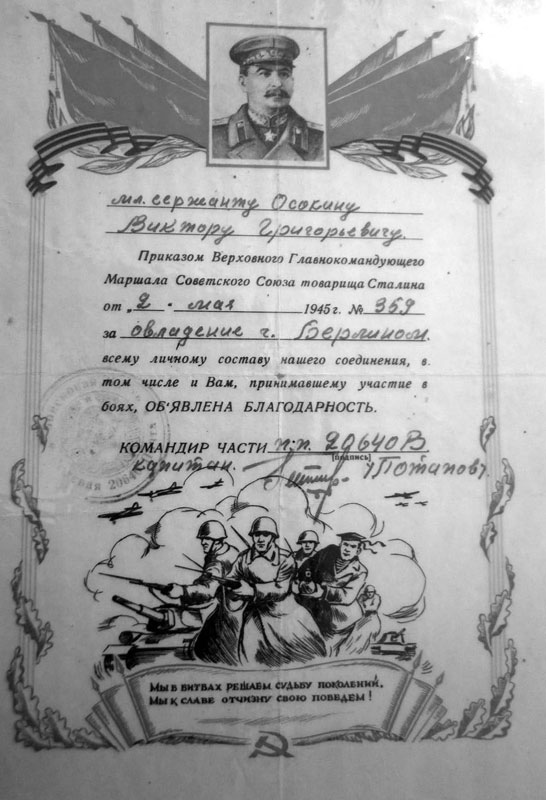 мл. сержанту Осокину
Виктору Григорьевичу.
Приказом Верховного Главнокомандующего
Маршала Советского Союза товарища Сталина
от „2 " мая 1945 г. № 359
за овладение г. Берлином.
всему личному составу нашего соединения, в
том числе и Вам, принимавшему участие в
боях, ОБ'ЯВЛЕНА БЛАГОДАРНОСТЬ.
КОМАНДИР ЧАСТИ п.п. 20640 В
[подпись]
капитан. (Потапов).
МЫ В БИТВАХ РЕШАЕМ СУДЬБУ ПОКОЛЕНИЙ,
МЫ К СЛАВЕ ОТЧИЗНУ СВОЮ ПОВЕДЕМ!